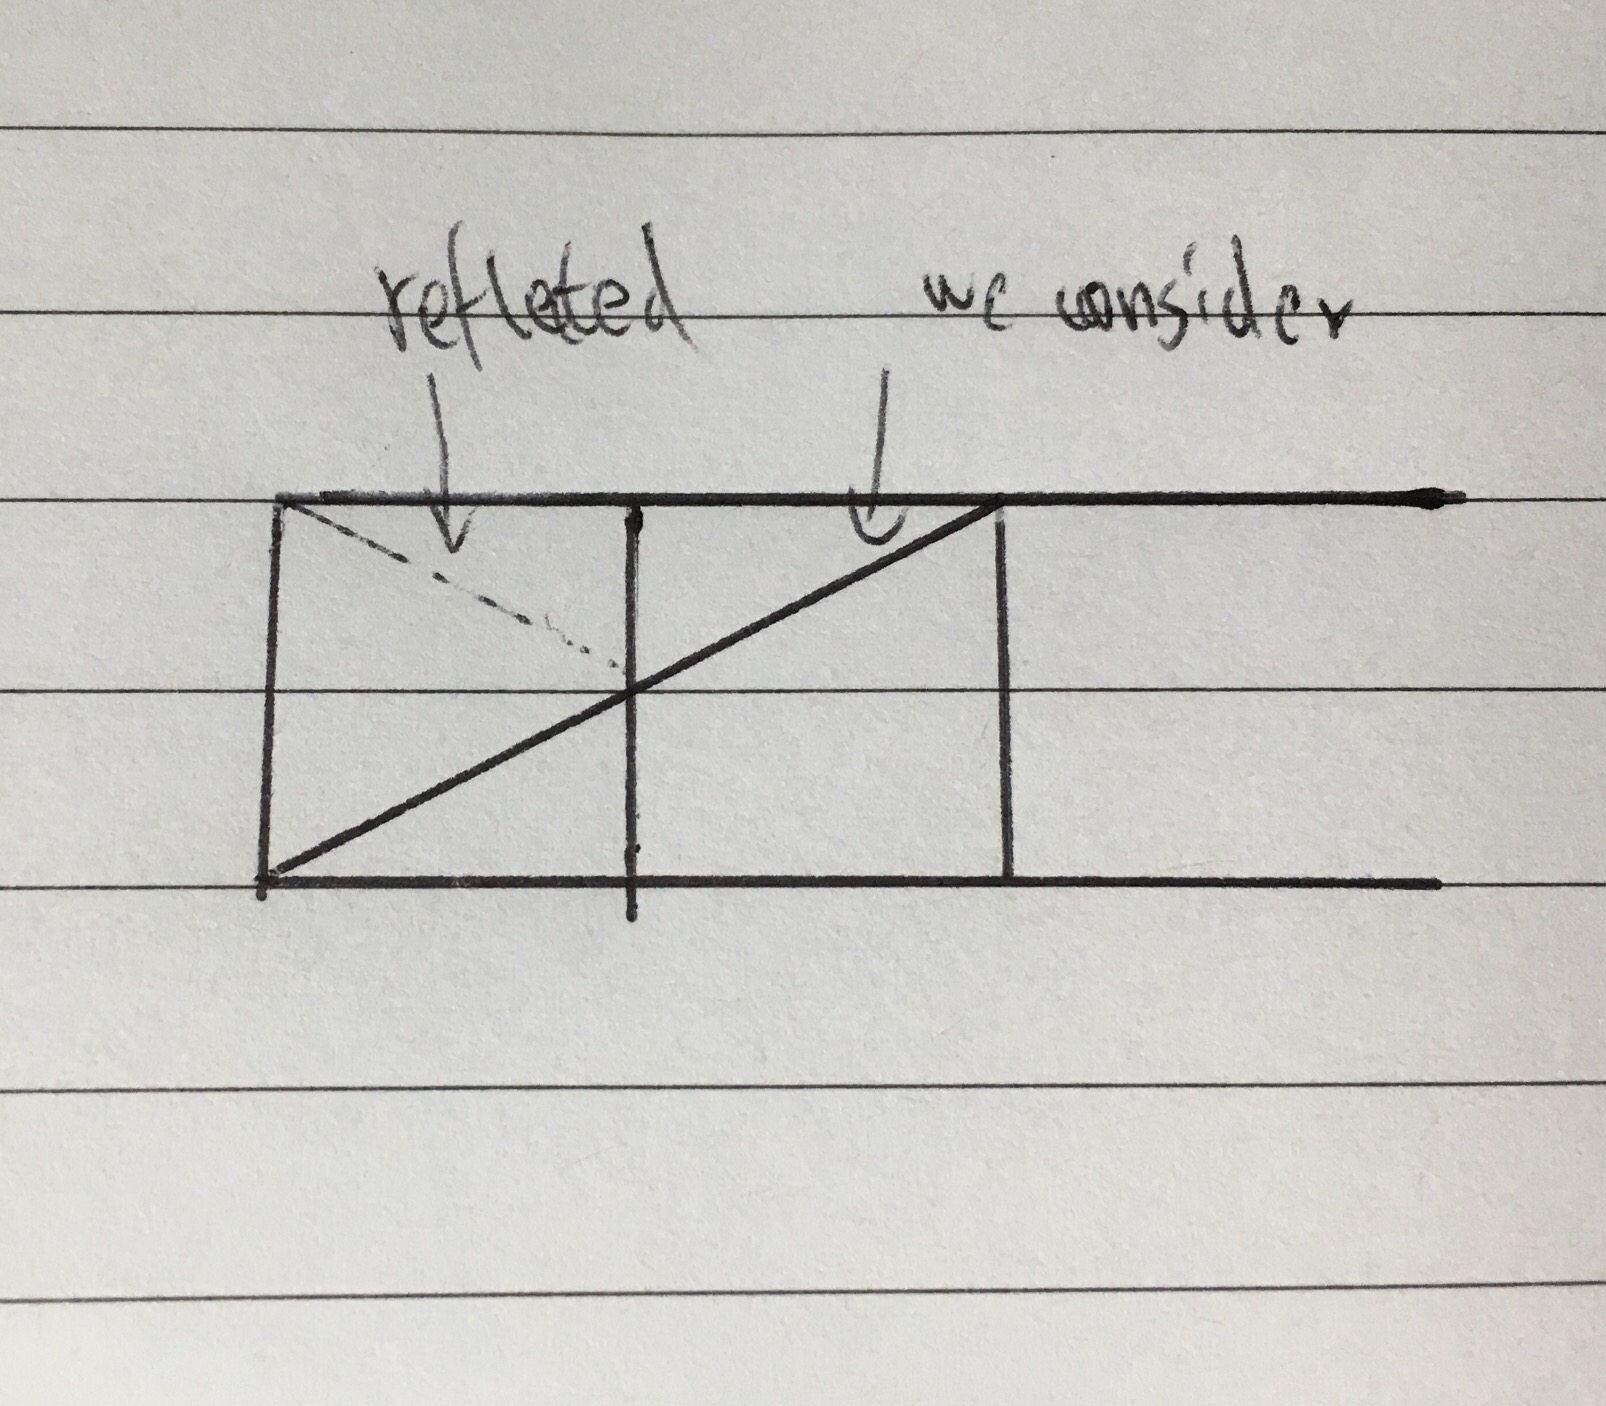 refleted we consider